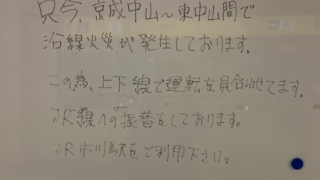 只今、京成中山～東中山間で
沿線火災が発生しております。
この為、上下線で運転を見合わせてます。
JR線への振替をしております。
JR市川駅をご利用下さい。